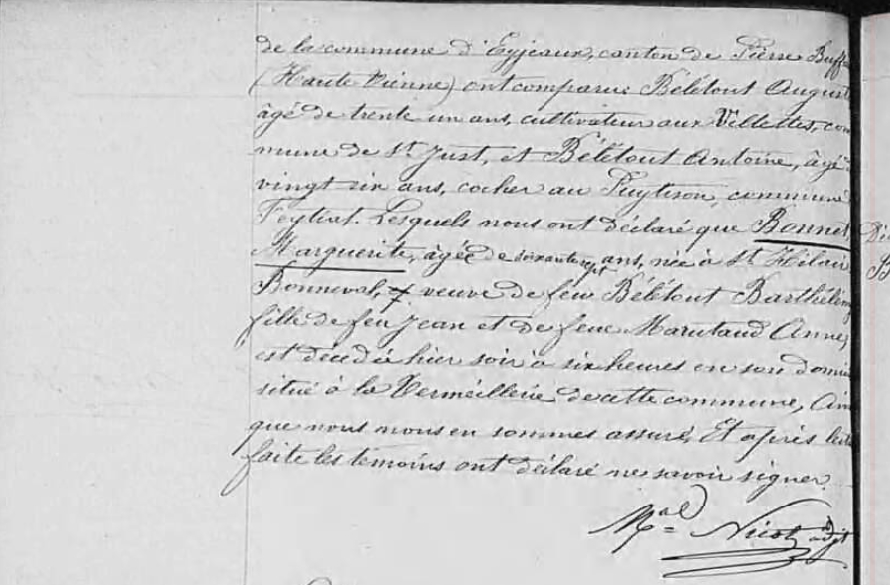 de la commune d'Eyjeaux, canton de Pierre Buff
(Haute Vienne) ont comparu Bélétout August
âgé de trente un ans, cultivateur aux Villettes, com
mune de St Just, et Bélétout Antoine, âgé d
vingt six ans, cocher au Puytison, commune
Feytiat. Lesquels nous ont déclaré que Bonnet
Marguerite, âgée de soixante sept ans, née à St Hilair
Bonneval, veuve de feu Bélétout Barthélém
fille de feu Jean et de feue Marutaud Anne,
est décédée hier soir à six heures en son domi
situé à la Verméillerie de cette commune, Ain
que nous nous en sommes assuré, Et après lect
faite les temoins ont déclaré ne savoir signer.
Nicot adjt